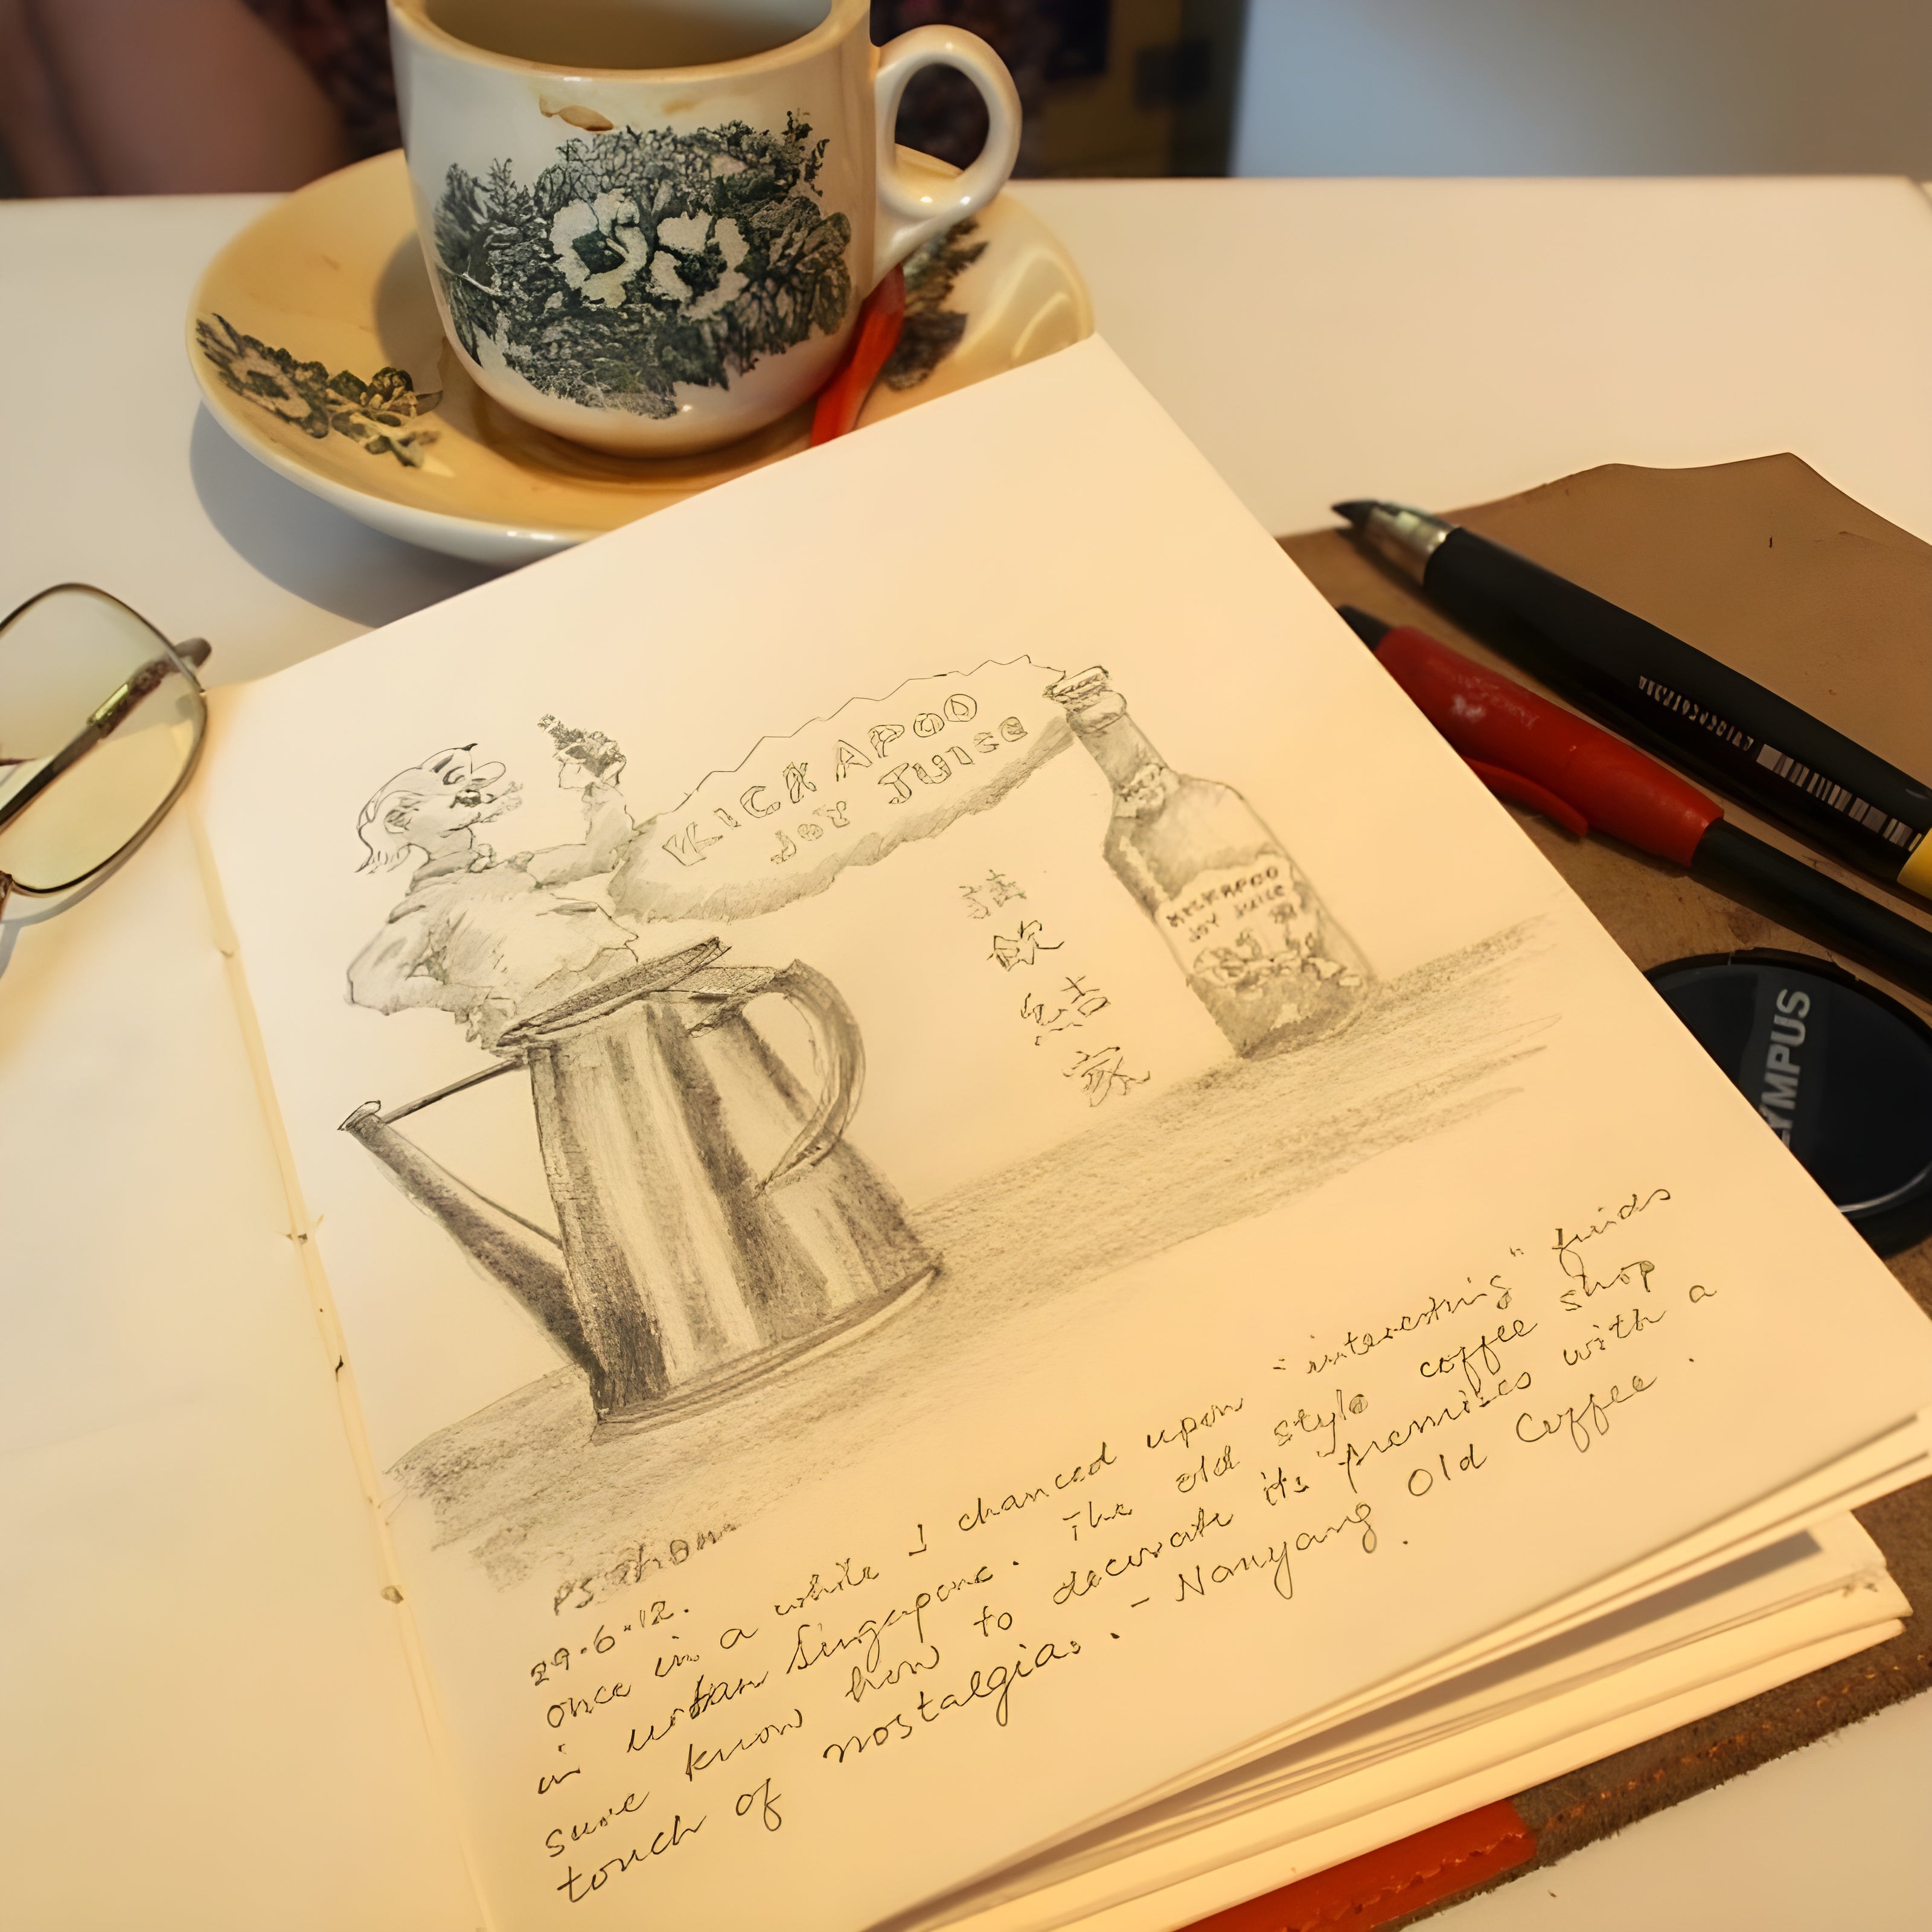 KICKAPOO
JOY JUICE
請
飲
KICKAPOO
JOY JUICE
家
OLYMPUS
29.6.12.
once in a while I chanced upon "interesting" finds
in urban Singapore. The old style coffee shop
sure know how to decorate its premises with a
touch of nostalgia. - Nanyang Old Coffee.